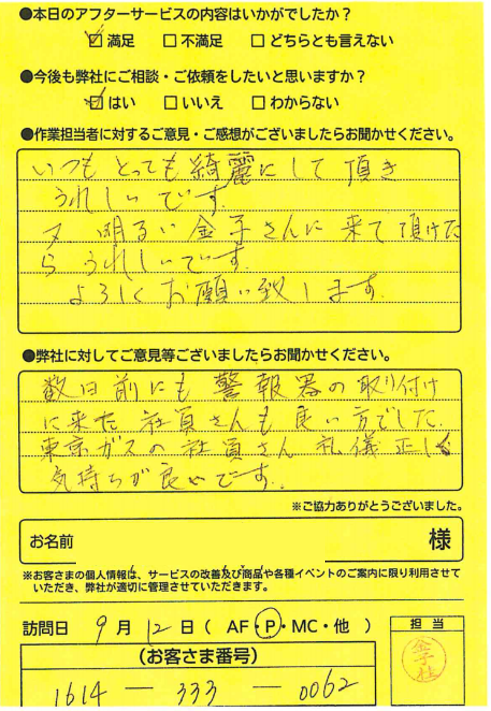 ●本日のアフターサービスの内容はいかがでしたか?
☑ 満足 □ 不満足 □ どちらとも言えない
●今後も弊社にご相談・ご依頼をしたいと思いますか?
☑ はい □ いいえ □ わからない
●作業担当者に対するご意見・ご感想がございましたらお聞かせください。
いつも とっても 綺麗にして 頂き
うれしいです.
又 明るい金子さんに 来て 頂けた
ら うれしいです.
よろしく お願い致します.
●弊社に対してご意見等ございましたらお聞かせください。
数日前にも 警報器の 取り付け
に来た 社員さんも 良い方でした.
東京ガスの 社員さん 礼儀正しく
気持ちが良いです.
※ご協力ありがとうございました。
お名前 様
※お客さまの個人情報は、サービスの改善及び商品や各種イベントのご案内に限り利用させて
いただき、弊社が適切に管理させていただきます。
訪問日 9月 12日 ( AF・P・MC・他 )
担 当
金子
(お客さま番号)
1614 — 333 — 0062